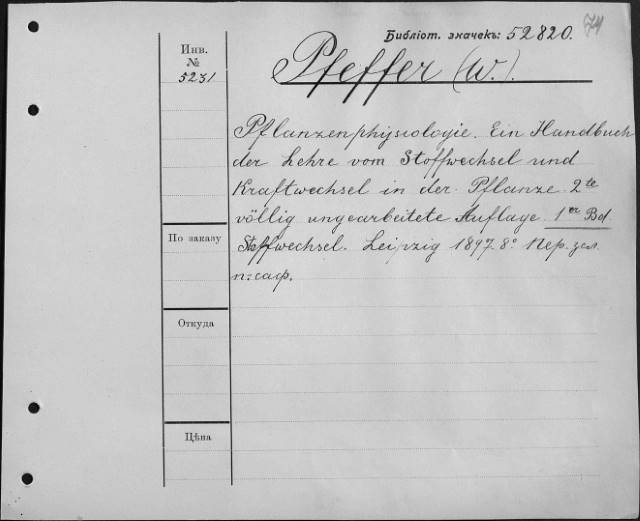 Библіот. значекъ: 52820.
74
Инв.
№
5231
Pfeffer (W.).
Pflanzenphysiologie. Ein Handbuch
der Lehre vom Stoffwechsel und
Kraftwechsel in der Pflanze. 2te
völlig ungearbeitete Auflage. 1er Bd.
Stoffwechsel. Leipzig 1897. 8° Пер. зел.
п: саф.
По заказу
Откуда
Цѣна